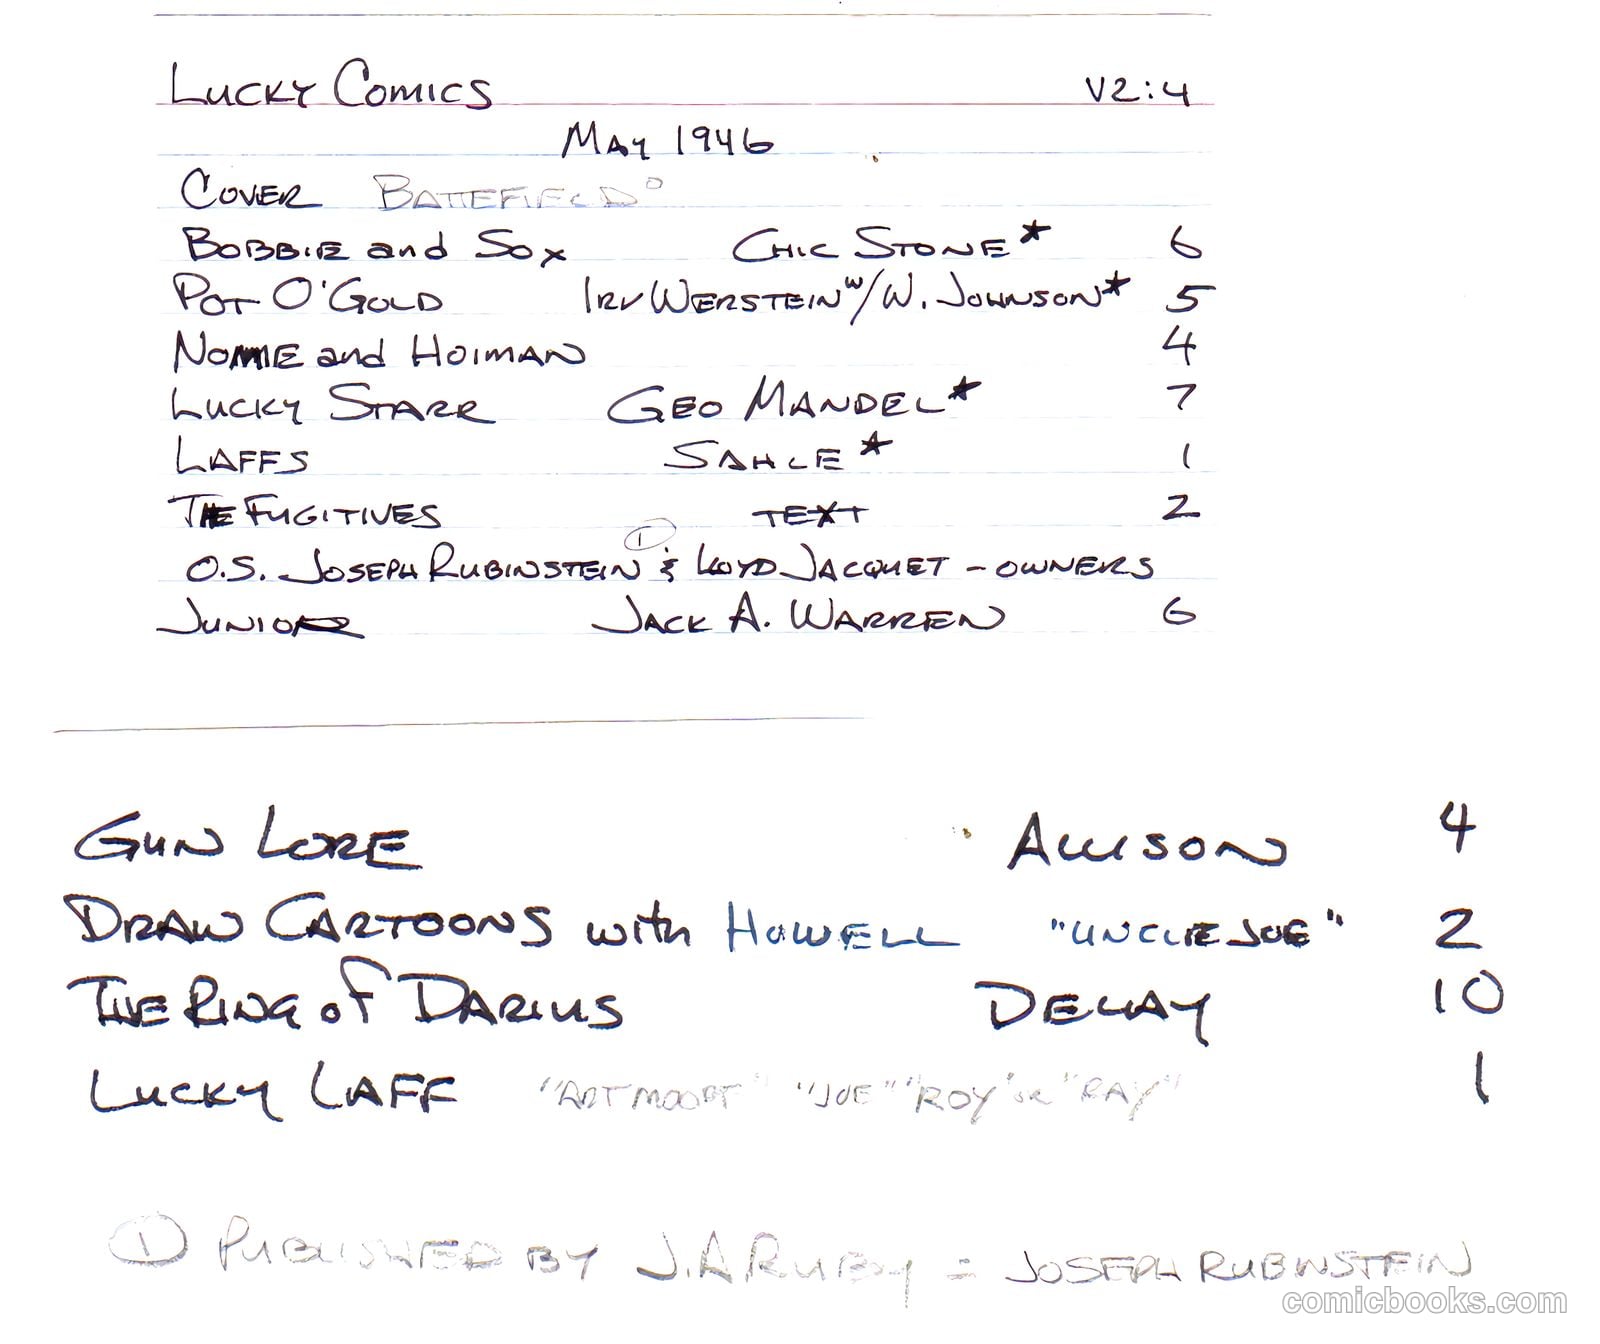 Lucky Comics V2:4
May 1946
Cover Battefield°
Bobbie and Sox Chic Stone* 6
Pot O'Gold Irv Werstein w/W. Johnson* 5
and Hoiman 4
Lucky Starr Geo Mandel* 7
Laffs Sahle* 1
The Fugitives text 2
O.S. Joseph Rubinstein ① & Lloyd Jacquet - owners
Junior Jack A. Warren 6
Gun Lore Allison 4
Draw Cartoons with Howell "Uncle Joe" 2
The Ring of Darius Delay 10
Lucky Laff "Joe" "Roy" or "Ray" 1
① Published by J.A Ruby = Joseph Rubinstein
comicbooks.com